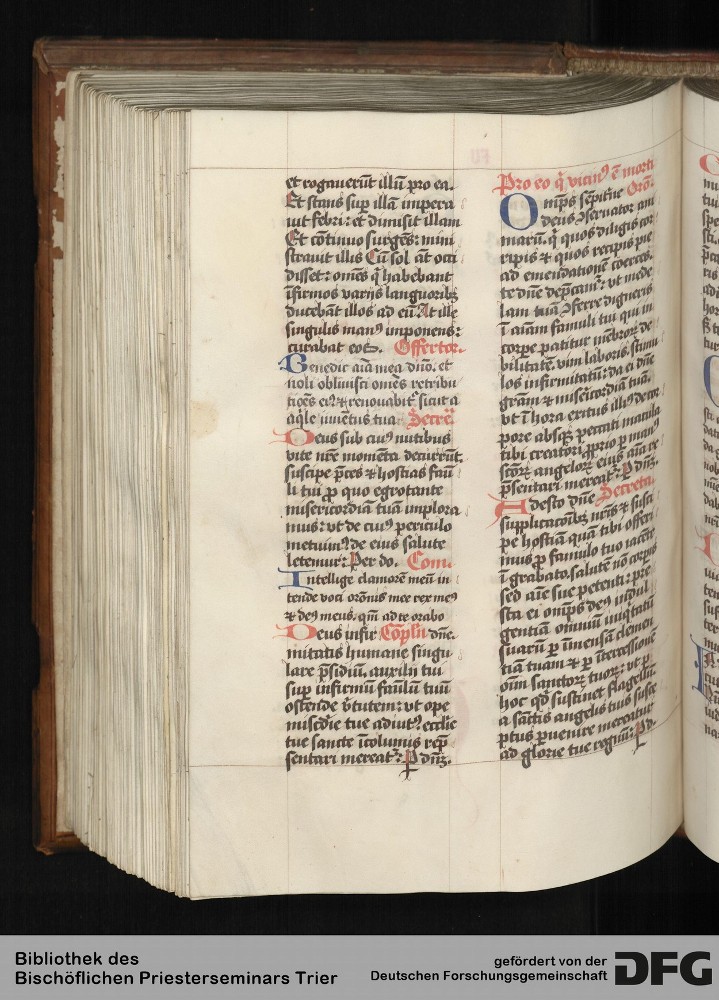 et rogauerūt illū pro ea.
Et stans suꝑ illā impera
uit febri: et dimisit illam
Et cōtinuo surgēs: mini
strauit illis Cū sol āt occi
disset: om̄es q̄ habebant
īfirmos varijs languoribꝫ
ducebāt illos ad eū. At ille
singulis manꝰ imponens:
curabat eos. Offertor.
Benedic aīa mea dn̄o. et
noli obliuisci om̄es retribu
tiōes eiꝰ et renouabit᷑ sicut a
aq̄le iuuētus tua Secre͞
Deus sub cuiꝰ nutibus
vite nr̄e momēta decurrūt.
suscipe p̄ces et hostias fāu
li tui ꝓ quo egrotante
misericordiā tuā implora
mus: vt de cuiꝰ periculo
metuimꝰ de eius salute
letemur: Per do. Com.
Intellige clamorē meū in
tende voci orōnis mee rex meꝰ
et deꝰ meus. qm̄ ad te orabo
Deus infir Cōpln̄ dn̄e.
mitatis humane singu
lare p̄sidiū. auxilij tui
suꝑ infirmū fāulū tuū
ostende v̄tutem: vt ope
mīsc̄die tue adiutꝰ. ecclīe
tue sancte īcolumis rep̄
sentari mereat᷑: P dn̄ꝫ.
Pro eo q̄ vicinꝰ ē morti
Orō.
Omīps sēpitn̄e
deus ꝯseruator ani
marū. q̄ quos diligis cor
ripis et quos recipis pie
ad emendationē coerces.
te dn̄e dep̄camᷣ: vt mede
lam tuā ꝯferre digneris
ī aīam famuli tui qui in
corꝑe patitur mēbroꝝ de
bilitatē. vim laboris. stimu
los infirmitatū: da ei dn̄e
gr̄am et misericordiā tuā.
vt ī hora exitus illiꝰ de cor
pore absqꝫ peccati macula
tibi creatori ꝓprio ꝑ manꝰ
sc̄torꝝ angeloꝝ eius aīa re
p̄sentari mereat᷑: P dn̄ꝫ.
Adesto dn̄e Secreta.
supplicacōibꝫ nr̄is et susci
pe hostiā quā tibi offeri
mus ꝓ famulo tuo iacēte
ī grabato. salutē nō corpis
sed aīe sue petenti: pre
sta ei om̄ps deꝰ indul
gentiā omniū iniq̄tatū
suarū ꝑ īmensā clemen
tiā tuam et ꝑ ītercessione
om̄ sanctorꝝ tuoꝝ: vt ꝑ
hoc qd̄ sustinet flagellū.
a sāctis angelis tuis susce
ptus ꝑuenire mereatur
ad glorie tue regnū: P d.
Bibliothek des
Bischöflichen Priesterseminars Trier
gefördert von der
Deutschen Forschungsgemeinschaft
DFG